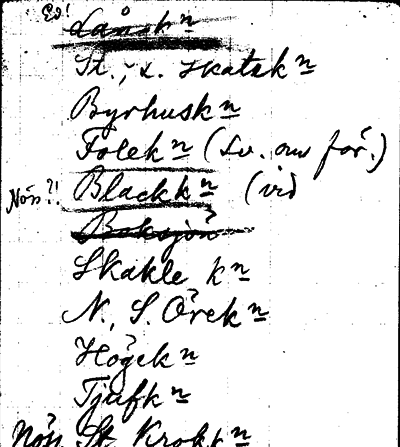 Ej!
St., L. Skatsk n
Byrhusk n
Folek n (Sv. om för.)
Nön?! Blackk n (vid
Boksjön
Skakle k n
N., S. Örek n
Högek n
Tjufk n
Nön St. Krokk n